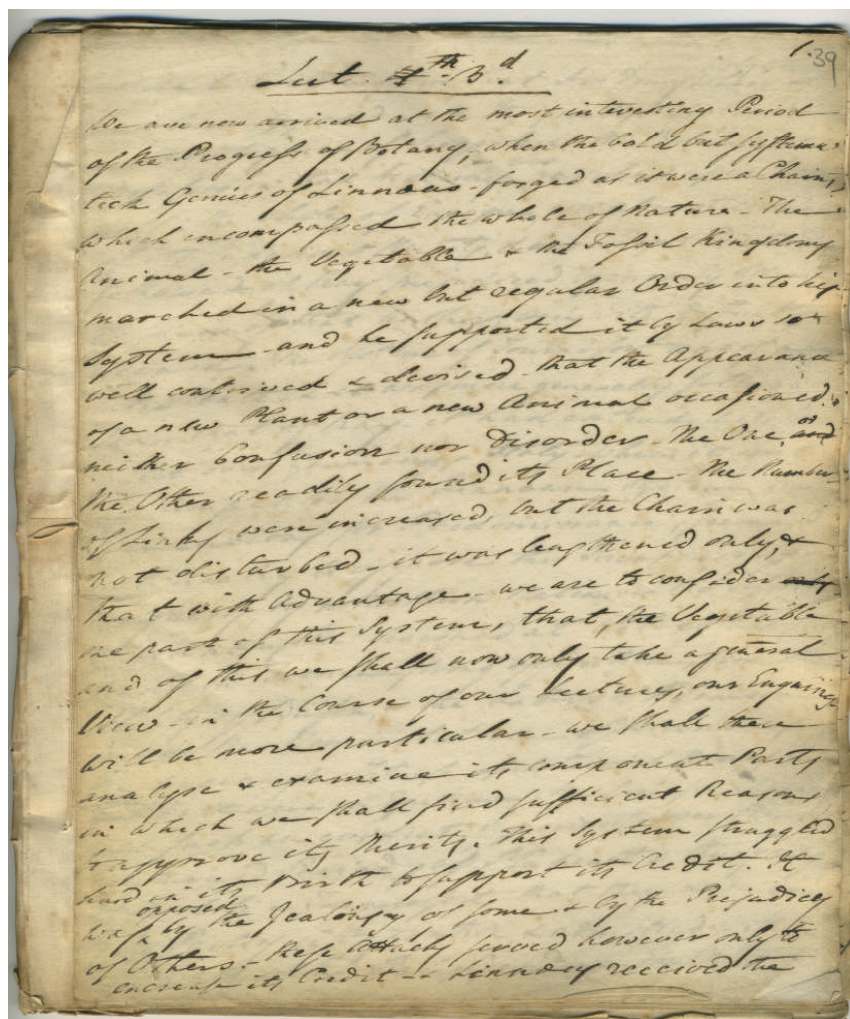 1. 39
Lect. 4th. 3d.
We are now arrived at the most interesting Period
of the Progress of Botany, when the bold but systema-
tick Genius of Linnæus - forged as it were a Chain,
which incompassed the whole of Nature - The
Animal - the Vegetable & the Fossil Kingdoms
marched in a new but regular Order into his
System - and he supported it by Laws so
well contrived & devised - that the Appearance
of a new Plant or a new Animal occasioned
neither Confusion nor Disorder - the One, or and
the Other readily found its Place - the Number
of Links were increased, but the Chain was
not disturbed - it was lengthened only, &
that with Advantage - we are to consider only
one part of this System, that, the Vegetable
and of this we shall now only take a general
View - in the Course of our Lectures, our Enquiries
will be more particular - we shall there
analyse & examine its component Parts
in which we shall find sufficient Reasons
to approve its Merits. This System struggled
hard in its Birth to support its Credit. It
was opposed by the Jealousy of some & by the Prejudices
of Others - these Attacks served however only to
encrease its Credit - Linnæus received the